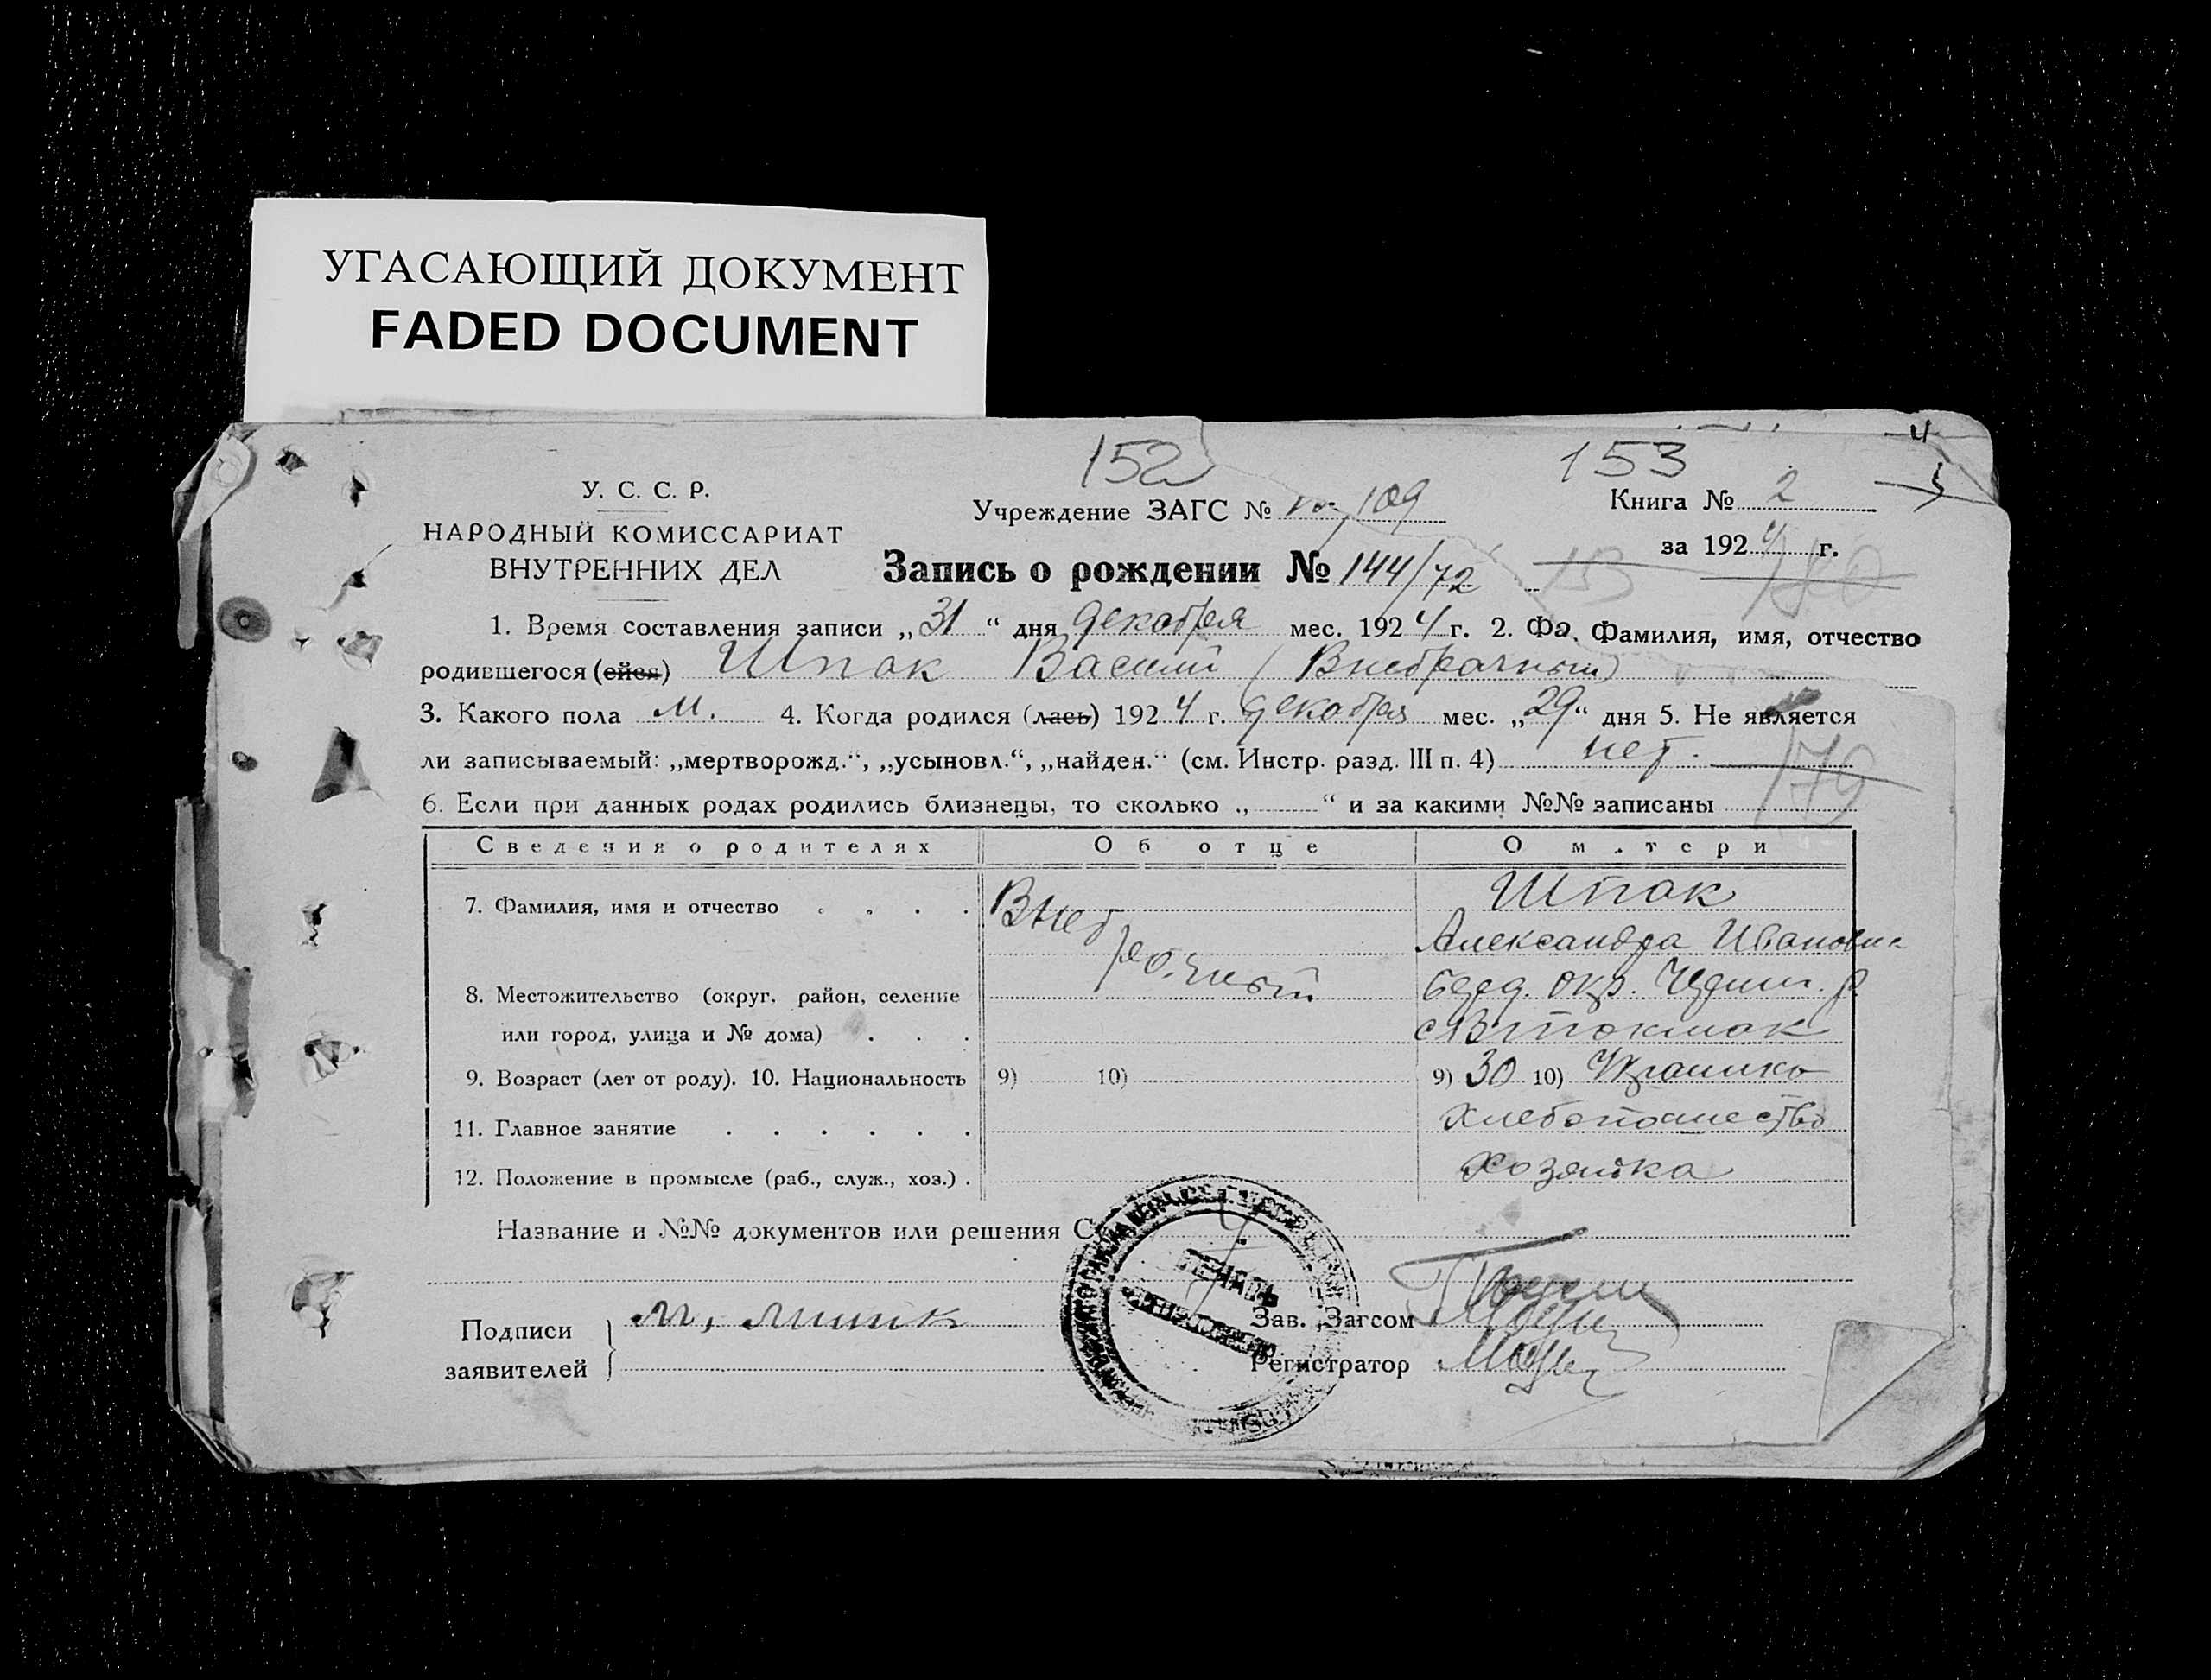 УГАСАЮЩИЙ ДОКУМЕНТ
FADED DOCUMENT
152 153
У. С. С. Р.
НАРОДНЫЙ КОМИССАРИАТ
ВНУТРЕННИХ ДЕЛ
Учреждение ЗАГС № 109
Книга № 2
за 1924 г.
Запись о рождении № 144/72 153 180
1. Время составления записи „31“ дня декабря мес. 1924 г. 2. Фа. Фамилия, имя, отчество
родившегося (ейся) Шпак Василий (Внебрачный)
3. Какого пола м. 4. Когда родился (лась) 1924 г. декабря мес. „29“ дня 5. Не является
ли записываемый: „мертворожд.“, „усыновл.“, „найден.“ (см. Инстр. разд. III п. 4) нет. 179
6. Если при данных родах родились близнецы, то сколько „ “ и за какими №№ записаны
Сведения о родителях Об отце О м.тери
7. Фамилия, имя и отчество . . . . Внебрачный Шпак
Александра Ивановна
8. Местожительство (округ, район, селение
или город, улица и № дома) . . . окр. р.
9. Возраст (лет от роду). 10. Национальность 9) 10) 9) 30 10)
11. Главное занятие . . . . . . хлебопашество
12. Положение в промысле (раб., служ., хоз.) . хозяйка
Название и №№ документов или решения С
ПЕЧАТЬ
Подписи
заявителей
Зав. Загсом
Регистратор